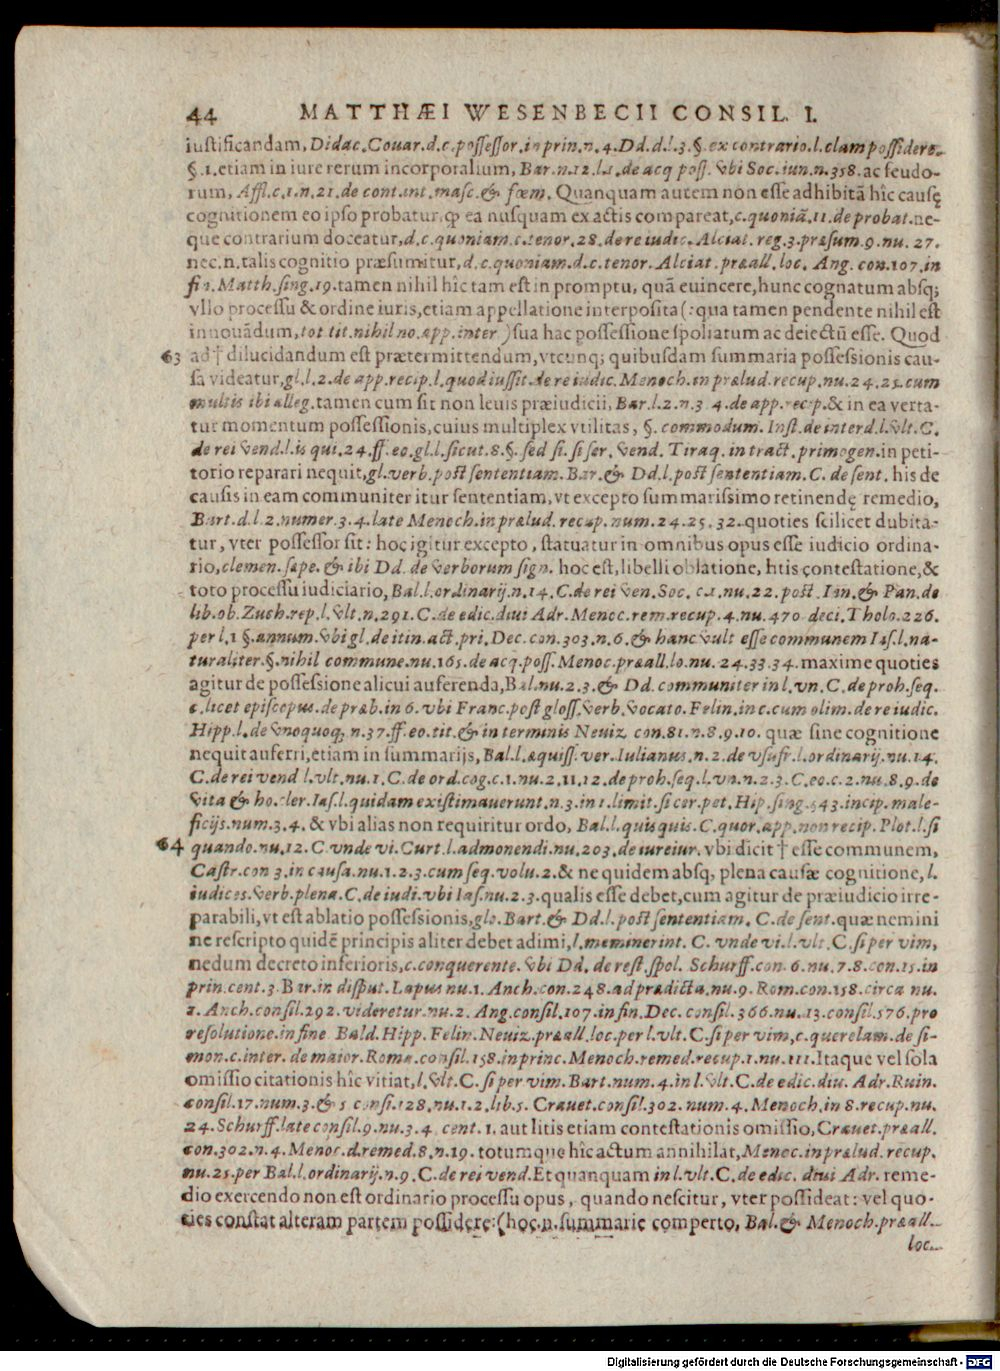 44 MATTHÆI WESENBECII CONSIL. I.
iustificandam, Didac. Couar.d.c.possessor.in prin.n.4.Dd.d.l.3.§.ex contrario.l.clam possidere.
§.1.etiam in iure rerum incorporalium, Bar.n.12.l.1.de acq poss. vbi Soc.iun.n.358. ac feudo-
rum, Affl.c.1.n.21.de cont.int masc.& fœm. Quanquam autem non esse adhibitā hîc causę
cognitionem eo ipso probatur, ꝙ ea nusquam ex actis compareat, c.quoniā.11.de probat.ne-
que contrarium doceatur, d.c.quoniam.c.tenor.28.de re iudic. Alciat. reg.3.præsum.9.nu. 27.
nec.n.talis cognitio præsumitur, d.c.quoniam.d.c.tenor. Alciat. præall. loc. Ang. con.107.in
fin. Matth.sing.19. tamen nihil hîc tam est in promptu, quā euincere, hunc cognatum absq;
vllo processu & ordine iuris, etiam appellatione interposita (: qua tamen pendente nihil est
innouādum, tot tit.nihil no.app.inter ) sua hac possessione spoliatum ac deiectū esse. Quod
63 ad † dilucidandum est prætermittendum, vtcunq; quibusdam summaria possessionis cau-
sa videatur, gl.l.2.de app.recip.l.quod iussit.de re iudic. Menoch.in prælud.recup.nu.24.25.cum
multis ibi alleg. tamen cum sit non leuis præiudicij, Bar.l.2.n.3.4.de app.recip.& in ea verta-
tur momentum possessionis, cuius multiplex vtilitas, §. commodum. Inst.de interd.l.vlt.C.
de rei vend.l.is qui.24.ff.eo.gl.l.sicut.8.§.sed si.si ser. vend. Tiraq. in tract. primogen. in peti-
torio reparari nequit, gl.verb.post sententiam. Bar.& Dd.l.post sententiam. C. de sent. his de
causis in eam communiter itur sententiam, vt excepto summarissimo retinendę remedio,
Bart.d.l.2.numer.3.4.late Menoch.in prælud.recup.num.24.25.32. quoties scilicet dubita-
tur, vter possessor sit: hoc igitur excepto, statuatur in omnibus opus esse iudicio ordina-
rio, clemen.sæpe.& ibi Dd. de verborum sign. hoc est, libelli oblatione, litis contestatione, &
toto processu iudiciario, Bal.l.ordinarij.n.14.C.de rei ven. Soc. c.1.nu.22.post.Inn.& Pan.de
lib.ob. Zuch.rep.l.vlt.n.291.C.de edic.diui Adr. Menoc.rem.recup.4.nu.470 deci.Tholo.226.
per l.1 §.annum.vbi gl.de itin.act.pri. Dec.con.303.n.6.& hanc vult esse communem Ias.l.na-
turaliter.§.nihil commune.nu.165.de acq.poss. Menoc.præall.lo.nu. 24.33.34. maxime quoties
agitur de possessione alicui auferenda, Bal.nu.2.3.& Dd. communiter in l.vn.C.de proh.seq.
c.licet episcopus.de præb.in 6. vbi Franc.post gloss.verb.vocato. Felin.in c.cum olim.de re iudic.
Hipp.l.de vnoquoq;.n.37.ff.eo.tit.& in terminis Neuiz. con.81.n.8.9.10. quæ sine cognitione
nequit auferri, etiam in summarijs, Bal.l.æquiss. ver. Iulianus.n.2.de vsufr.l.ordinarij.nu.14.
C.de rei vend l.vlt.nu.1.C.de ord.cog.c.1.nu.2.11.12.de proh.seq.l.vn.n.2.3.C.eo.c.2.nu.8.9.de
vita & ho.cler. Ias.l.quidam existimauerunt.n.3.in 1.limit.si cer.pet. Hip.sing.543.incip.male-
ficijs.num.3.4. & vbi alias non requiritur ordo, Bal.l.quisquis.C.quor.app.non recip. Plot.l.si
64 quando.nu.12.C.vnde vi. Curt.l.admonendi.nu.203.de iureiur. vbi dicit † esse communem,
Castr.con 3.in causa.nu.1.2.3.cum seq.volu.2.& ne quidem absq; plena causæ cognitione, l.
iudices.verb.plena.C.de iudi.vbi Ias.nu.2.3. qualis esse debet, cum agitur de præiudicio irre-
parabili, vt est ablatio possessionis, glo. Bart.& Dd.l.post sententiam. C. de sent. quæ nemini
ne rescripto quidē principis aliter debet adimi, l.meminerint. C. vnde vi.l.vlt. C.si per vim,
nedum decreto inferioris, c.conquerente. vbi Dd. de rest.spol. Schurff.con.6.nu.7.8.con.15.in
prin.cent.3. Bar.in disput. Lapus nu.1. Anch.con.248.ad prædicta.nu.9. Rom.con.158.circa nu.
2. Anch.consil.292.videretur.nu.2. Ang.consil.107.in fin. Dec.consil.366.nu.13.consil.576.pro
resolutione.in fine Bald. Hipp. Felin. Neuiz.præall.loc.per l.vlt.C.si per vim, c.querelam.de si-
mon.c.inter. de maior. Roma.consil.158.in princ. Menoch.remed.recup.1.nu.111. Itaque vel sola
omissio citationis hîc vitiat, l.vlt.C.si per vim. Bart.num.4.in l.vlt.C.de edic.diu. Adr. Ruin.
consil.17.num.3.& 5 consi.128.nu.1.2.lib.5. Crauet.consil.302. num.4. Menoch.in 8.recup.nu.
24. Schurff.late consil.9.nu.3.4. cent.1. aut litis etiam contestationis omissio, Crauet.præall.
con.302.n.4. Menoc.d.remed.8.n.19. totumque hîc actum annihilat, Menoc.in prælud.recup.
nu.25.per Bal.l.ordinarij.n.9.C.de rei vend. Et quanquam in l.vlt.C.de edic. diui Adr. reme-
dio exercendo non est ordinario processu opus, quando nescitur, vter possideat: vel quo-
ties constat alteram partem possidere: (hoc.n.summarie comperto, Bal.& Menoch.præall.
loc.
Digitalisierung gefördert durch die Deutsche Forschungsgemeinschaft - DFG